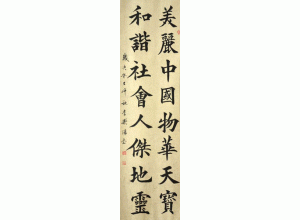 美麗中國物華天寶
和諧社會人傑地靈